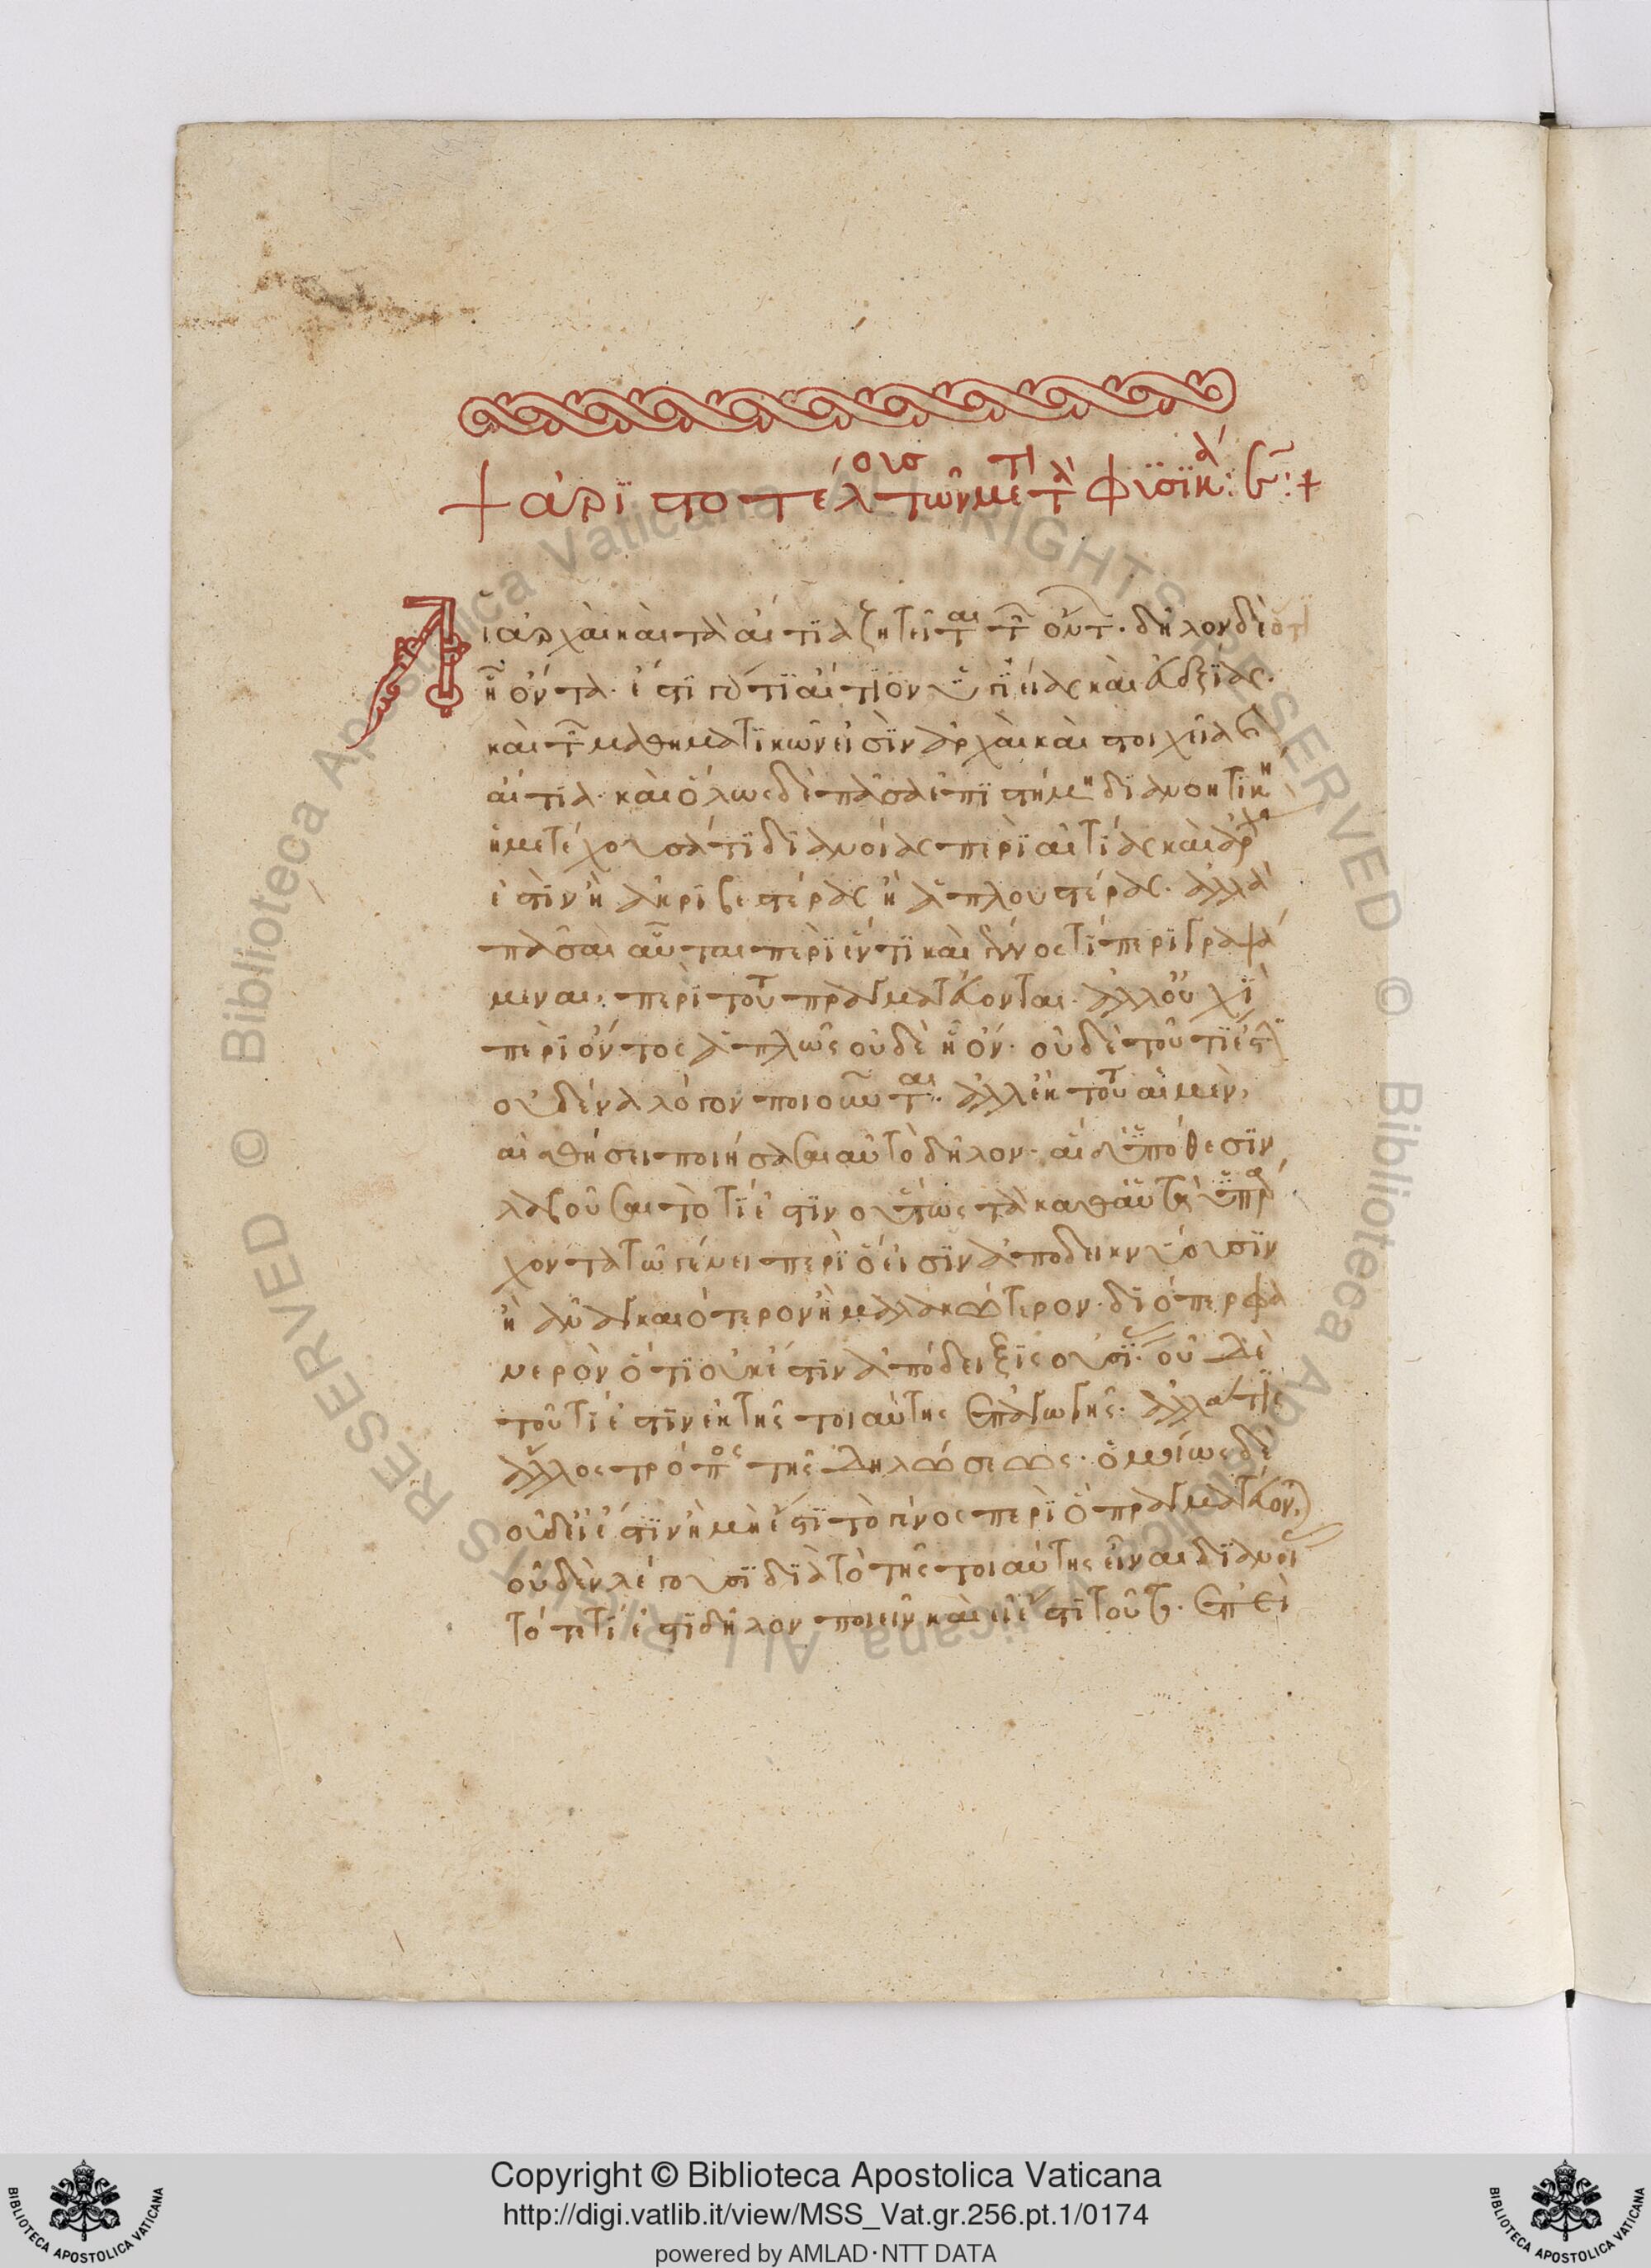 + ἀριστοτέλους τῶν μετὰ τὰ φυσικά: ϛ̄: +
Αἱ ἀρχαὶ καὶ τὰ αἴτια ζητεῖται τῶν ὄντων· δῆλον δὲ ὅτι
ᾗ ὄντα· ἔστι γάρ τι αἴτιον ὑγιείας καὶ εὐεξίας·
καὶ τῶν μαθηματικῶν εἰσὶν ἀρχαὶ καὶ στοιχεῖα καὶ
αἴτια· καὶ ὅλως δὲ πᾶσα ἐπιστήμη διανοητικὴ
ἢ μετέχουσά τι διανοίας περὶ αἰτίας καὶ ἀρχάς
ἐστὶν ἢ ἀκριβεστέρας ἢ ἁπλουστέρας· ἀλλὰ
πᾶσαι αὗται περὶ ἕν τι καὶ γένος τί περιγραψά
μεναι, περὶ τούτου πραγματεύονται· ἀλλ' οὐχὶ
περὶ ὄντος ἁπλῶς οὐδὲ ᾗ ὄν· οὐδὲ τοῦ τί ἐστιν
οὐδένα λόγον ποιοῦνται· ἀλλ' ἐκ τούτου αἱ μὲν,
αἰσθήσει ποιήσασαι αὐτὸ δῆλον· αἱ δ' ὑπόθεσιν
λαβοῦσαι τὸ τί ἐστιν οὕτως τὰ καθ' αὑτὰ ὑπάρ
χοντα τῷ γένει περὶ ὅ εἰσιν ἀποδεικνύουσιν
ἢ ἀναγκαιότερον ἢ μαλακώτερον· διόπερ φα
νερὸν ὅτι οὐκ ἔστιν ἀπόδειξις οὐσίας· οὐδὲ
τοῦ τί ἐστιν ἐκ τῆς τοιαύτης ἐπαγωγῆς· ἀλλά τις
ἄλλος τρόπος τῆς δηλώσεως· ὁμοίως δὲ
οὐδ' εἰ ἔστιν ἢ μὴ ἔστι τὸ γένος περὶ ὃ πραγματεύονται
οὐδὲν λέγουσι διὰ τὸ τῆς τοιαύτης εἶναι διανοίας
τό τε τί ἐστι δῆλον ποιεῖν καὶ εἰ ἔστι τοῦτο· ἐπεὶ
Copyright © Biblioteca Apostolica Vaticana
http://digi.vatlib.it/view/MSS_Vat.gr.256.pt.1/0174
powered by AMLAD·NTT DATA
BIBLIOTECA APOSTOLICA VATICANA
BIBLIOTECA APOSTOLICA VATICANA
© Biblioteca Apostolica Vaticana ALL RIGHTS RESERVED © Biblioteca Apostolica Vaticana ALL RIGHTS RESERVED